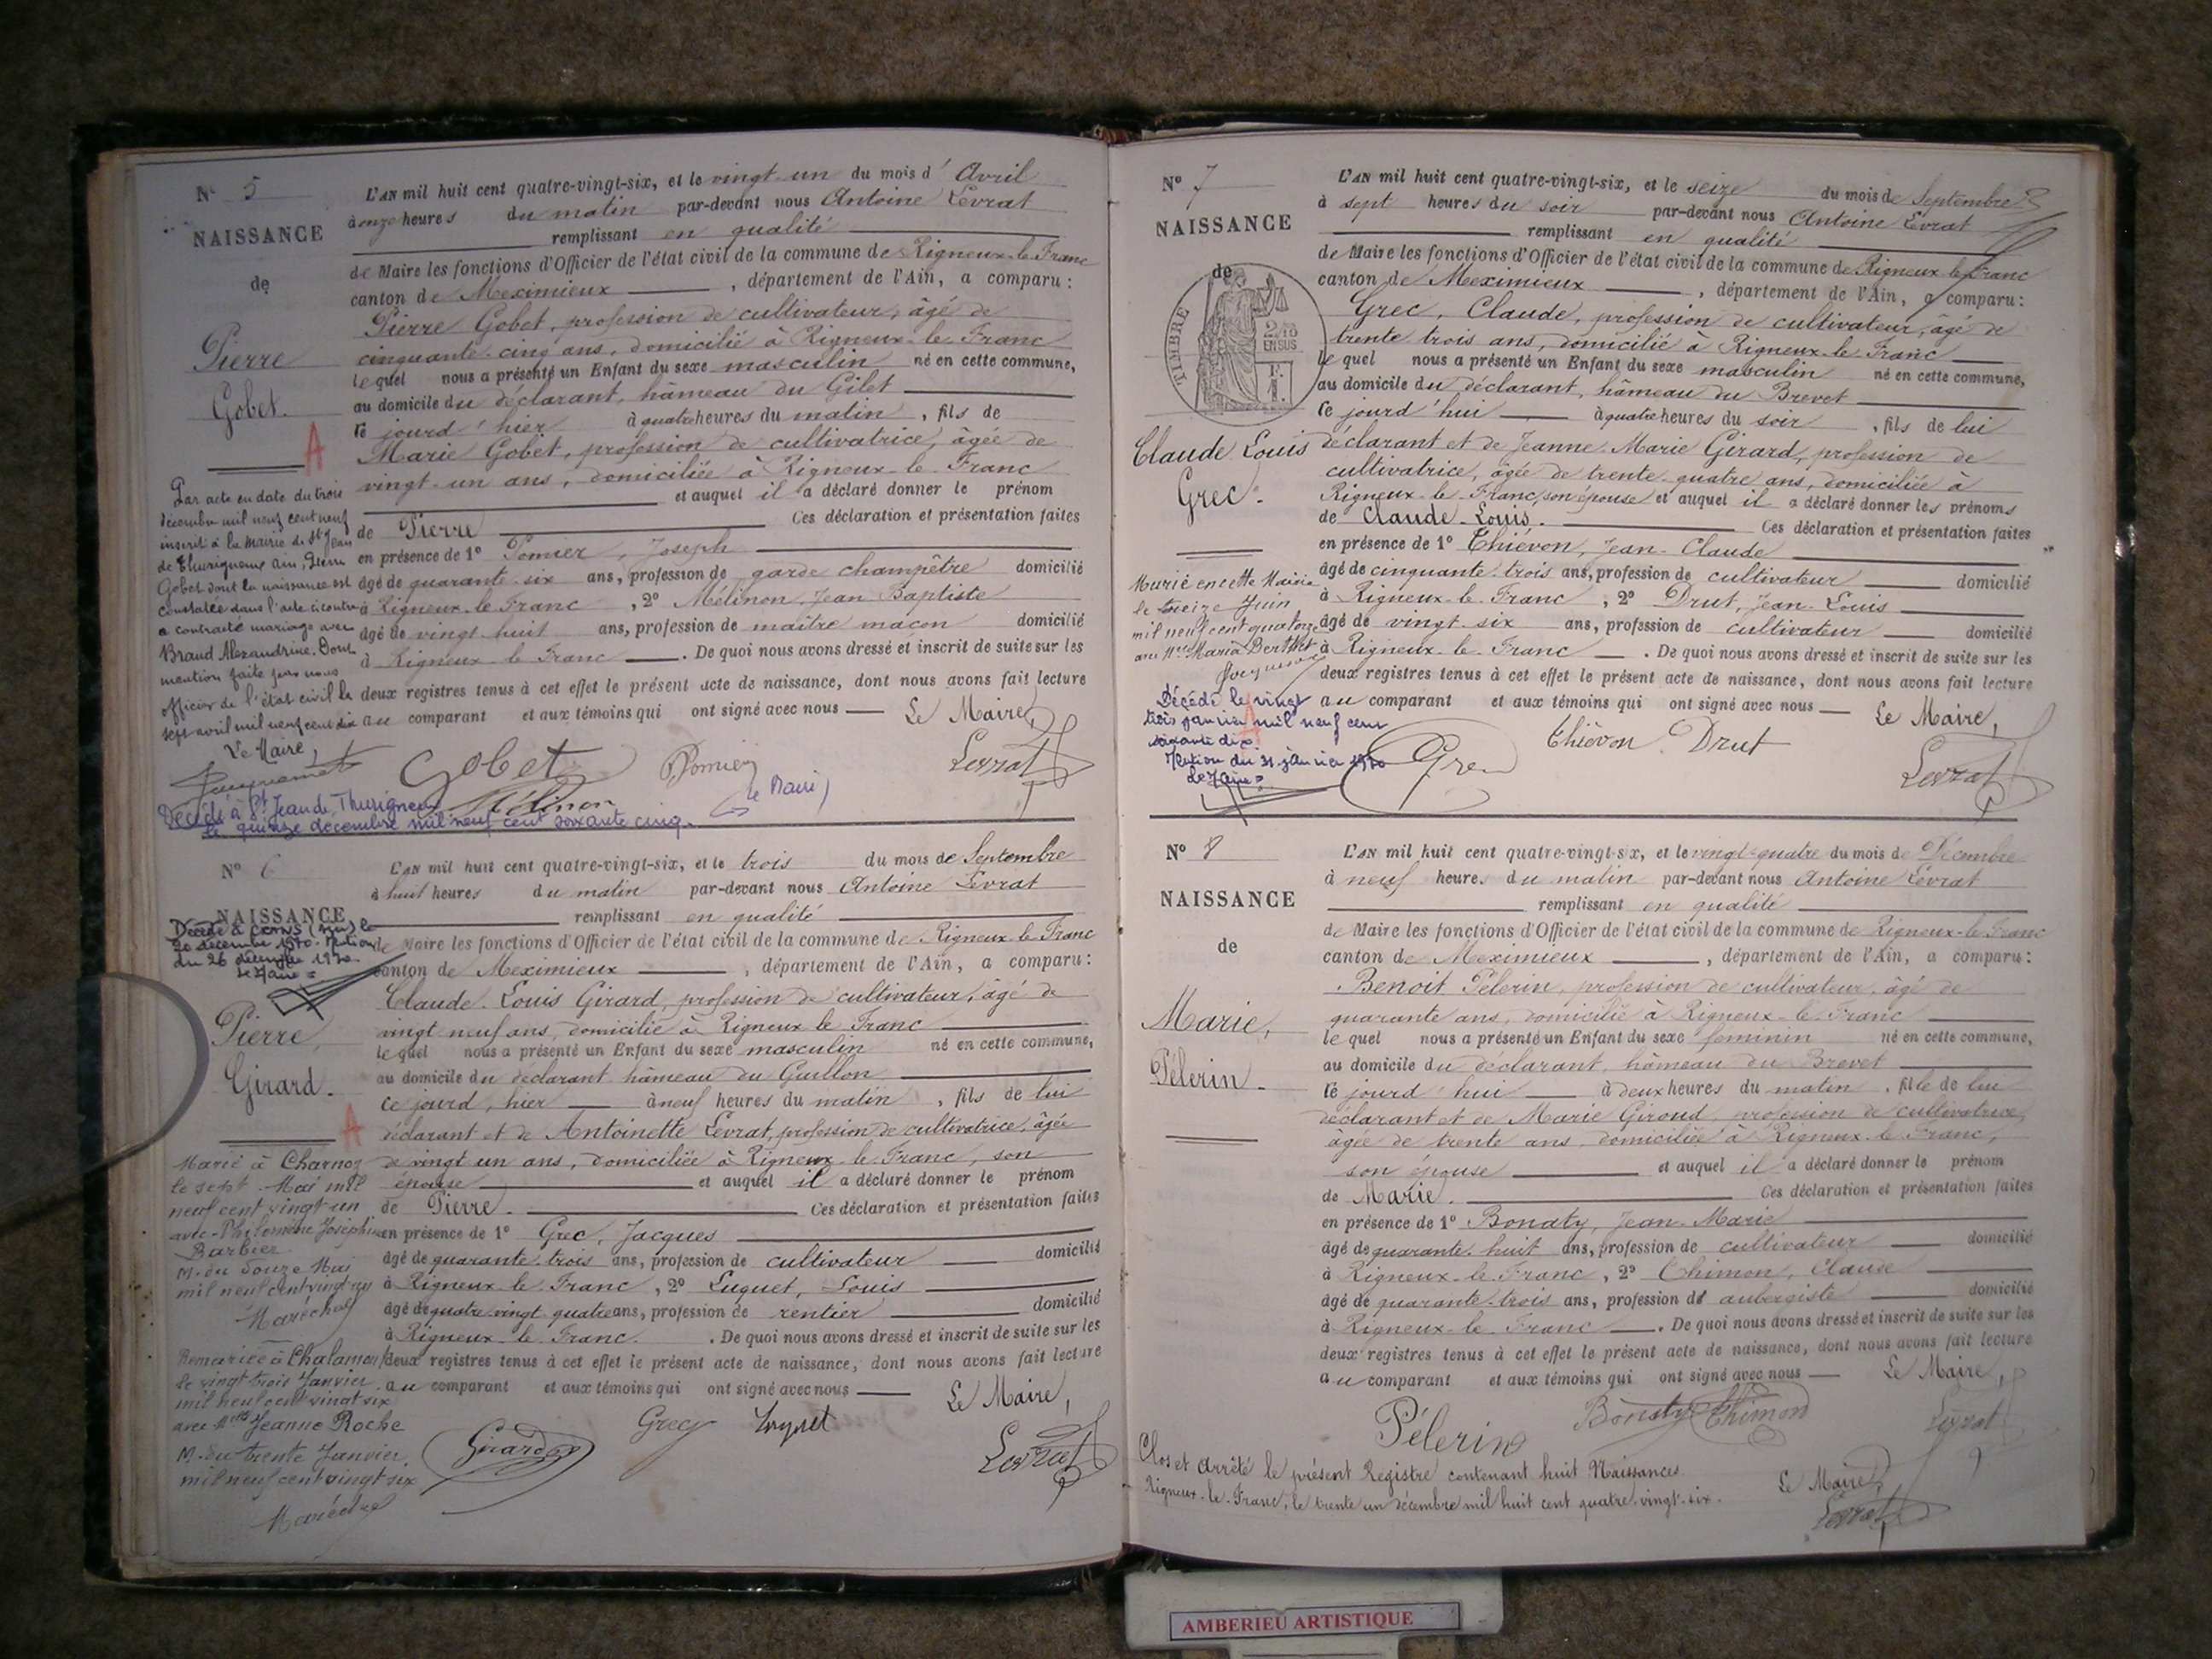 N° 5
NAISSANCE
de
Pierre
Gobet.
A
Par acte en date du trois
décembre mil neuf cent neuf
inscrit à la mairie de St Jean
de Thurigneux Ain, Pierre
Gobet dont la naissance est
constatée dans l'acte ci contre
a contracté mariage avec
Braud Alexandrine. Dont
mention faite par nous
officier de l'état civil le
sept avril mil neuf cent dix
Le Maire,
L'AN mil huit cent quatre-vingt-six, et le vingt-un du mois d'Avril
à onze heures du matin par-devant nous Antoine Levrat
remplissant en qualité
de Maire les fonctions d'Officier de l'état civil de la commune de Rigneux-le-Franc
canton de Meximieux, département de l'Ain, a comparu:
Pierre Gobet, profession de cultivateur, âgé de
cinquante-cinq ans, domicilié à Rigneux-le-Franc
lequel nous a présenté un Enfant du sexe masculin né en cette commune,
au domicile du déclarant, hâmeau du Gilet
ce jourd'hier à quatre heures du matin, fils de
Marie Gobet, profession de cultivatrice, âgée de
vingt-un ans, domiciliée à Rigneux-le-Franc
et auquel il a déclaré donner le prénom
de Pierre Ces déclaration et présentation faites
en présence de 1° Pomier, Joseph
âgé de quarante-six ans, profession de garde champêtre domicilié
à Rigneux-le-Franc, 2° Mélinon, Jean Baptiste
âgé de vingt-huit ans, profession de maître maçon domicilié
à Rigneux-le-Franc. De quoi nous avons dressé et inscrit de suite sur les
deux registres tenus à cet effet le présent acte de naissance, dont nous avons fait lecture
au comparant et aux témoins qui ont signé avec nous Le Maire,
Gobet Pomier Levrat
Mélinon le Maire
Décédé à St Jean de Thurigneux
le quinze décembre mil neuf cent soixante cinq.
N° 6
NAISSANCE
20 décembre 1970. Mention
du 26 décembre 1970.
Le Maire
Pierre,
Girard.
A
Marié à Charnoz
le sept Mai mil
neuf cent vingt-un
avec Philomène Joséphine
Barbier
M. du douze Mai
mil neuf cent vingt un
Maréchal
Remarié à Chalamont
le vingt trois Janvier
mil neuf cent vingt six
avec Mlle Jeanne Roche
M. du trente Janvier
mil neuf cent vingt six
Maréchal
L'AN mil huit cent quatre-vingt-six, et le trois du mois de Septembre
à huit heures du matin par-devant nous Antoine Levrat
remplissant en qualité
de Maire les fonctions d'Officier de l'état civil de la commune de Rigneux-le-Franc
canton de Meximieux, département de l'Ain, a comparu:
Claude-Louis Girard, profession de cultivateur, âgé de
vingt-neuf ans, domicilié à Rigneux-le-Franc
lequel nous a présenté un Enfant du sexe masculin né en cette commune,
au domicile du déclarant hâmeau du Guillon
ce jourd'hier à neuf heures du matin, fils de lui
déclarant et de Antoinette Levrat, profession de cultivatrice, âgée
de vingt un ans, domiciliée à Rigneux-le-Franc, son
épouse et auquel il a déclaré donner le prénom
de Pierre. Ces déclaration et présentation faites
en présence de 1° Grec, Jacques
âgé de quarante-trois ans, profession de cultivateur domicilié
à Rigneux-le-Franc, 2° Luquet, Louis
âgé de quatre-vingt-quatre ans, profession de rentier domicilié
à Rigneux-le-Franc. De quoi nous avons dressé et inscrit de suite sur les
deux registres tenus à cet effet le présent acte de naissance, dont nous avons fait lecture
au comparant et aux témoins qui ont signé avec nous Le Maire,
Girard Grec Luquet Levrat
N° 7
NAISSANCE
de
TIMBRE
2/10
EN SUS
Claude Louis
Grec.
Marié en cette Mairie
le treize Juin
mil neuf cent quatorze
avec Mlle Maria Berthet
Décédé le vingt
trois janvier mil neuf cent
soixante dix
Mention du 31 janvier 1970
Le Maire
L'AN mil huit cent quatre-vingt-six, et le seize du mois de Septembre
à sept heures du soir par-devant nous Antoine Levrat
remplissant en qualité
de Maire les fonctions d'Officier de l'état civil de la commune de Rigneux-le-Franc
canton de Meximieux, département de l'Ain, a comparu:
Grec, Claude, profession de cultivateur, âgé de
trente trois ans, domicilié à Rigneux-le-Franc
lequel nous a présenté un Enfant du sexe masculin né en cette commune,
au domicile du déclarant, hâmeau du Brevet
ce jourd'hui à quatre heures du soir, fils de lui
déclarant et de Jeanne-Marie Girard, profession de
cultivatrice, âgée de trente-quatre ans, domiciliée à
Rigneux-le-Franc, son épouse et auquel il a déclaré donner les prénoms
de Claude-Louis. Ces déclaration et présentation faites
en présence de 1° Thiévon, Jean-Claude
âgé de cinquante-trois ans, profession de cultivateur domicilié
à Rigneux-le-Franc, 2° Drut, Jean-Louis
âgé de vingt-six ans, profession de cultivateur domicilié
à Rigneux-le-Franc. De quoi nous avons dressé et inscrit de suite sur les
deux registres tenus à cet effet le présent acte de naissance, dont nous avons fait lecture
au comparant et aux témoins qui ont signé avec nous Le Maire,
Grec Thiévon Drut Levrat
N° 8
NAISSANCE
de
Marie,
Pélerin.
L'AN mil huit cent quatre-vingt-six, et le vingt-quatre du mois de Décembre
à neuf heures du matin par-devant nous Antoine Levrat
remplissant en qualité
de Maire les fonctions d'Officier de l'état civil de la commune de Rigneux-le-Franc
canton de Meximieux, département de l'Ain, a comparu:
Benoit Pélerin, profession de cultivateur, âgé de
quarante ans, domicilié à Rigneux-le-Franc
lequel nous a présenté un Enfant du sexe feminin né en cette commune,
au domicile du déclarant, hâmeau du Brevet
ce jourd'hui à deux heures du matin, fille de lui
déclarant et de Marie Giroud, profession de cultivatrice,
âgée de trente ans, domiciliée à Rigneux-le-Franc,
son épouse et auquel il a déclaré donner le prénom
de Marie. Ces déclaration et présentation faites
en présence de 1° Bonaty, Jean-Marie
âgé de quarante-huit ans, profession de cultivateur domicilié
à Rigneux-le-Franc, 2° Chimon, Claude
âgé de quarante-trois ans, profession de aubergiste domicilié
à Rigneux-le-Franc. De quoi nous avons dressé et inscrit de suite sur les
deux registres tenus à cet effet le présent acte de naissance, dont nous avons fait lecture
au comparant et aux témoins qui ont signé avec nous Le Maire,
Pélerin Bonaty Chimon Levrat
Clos et arrêté le présent Registre contenant huit Naissances
Rigneux-le-Franc, le trente un décembre mil huit cent quatre-vingt-six. Le Maire,
Levrat
AMBERIEU ARTISTIQUE